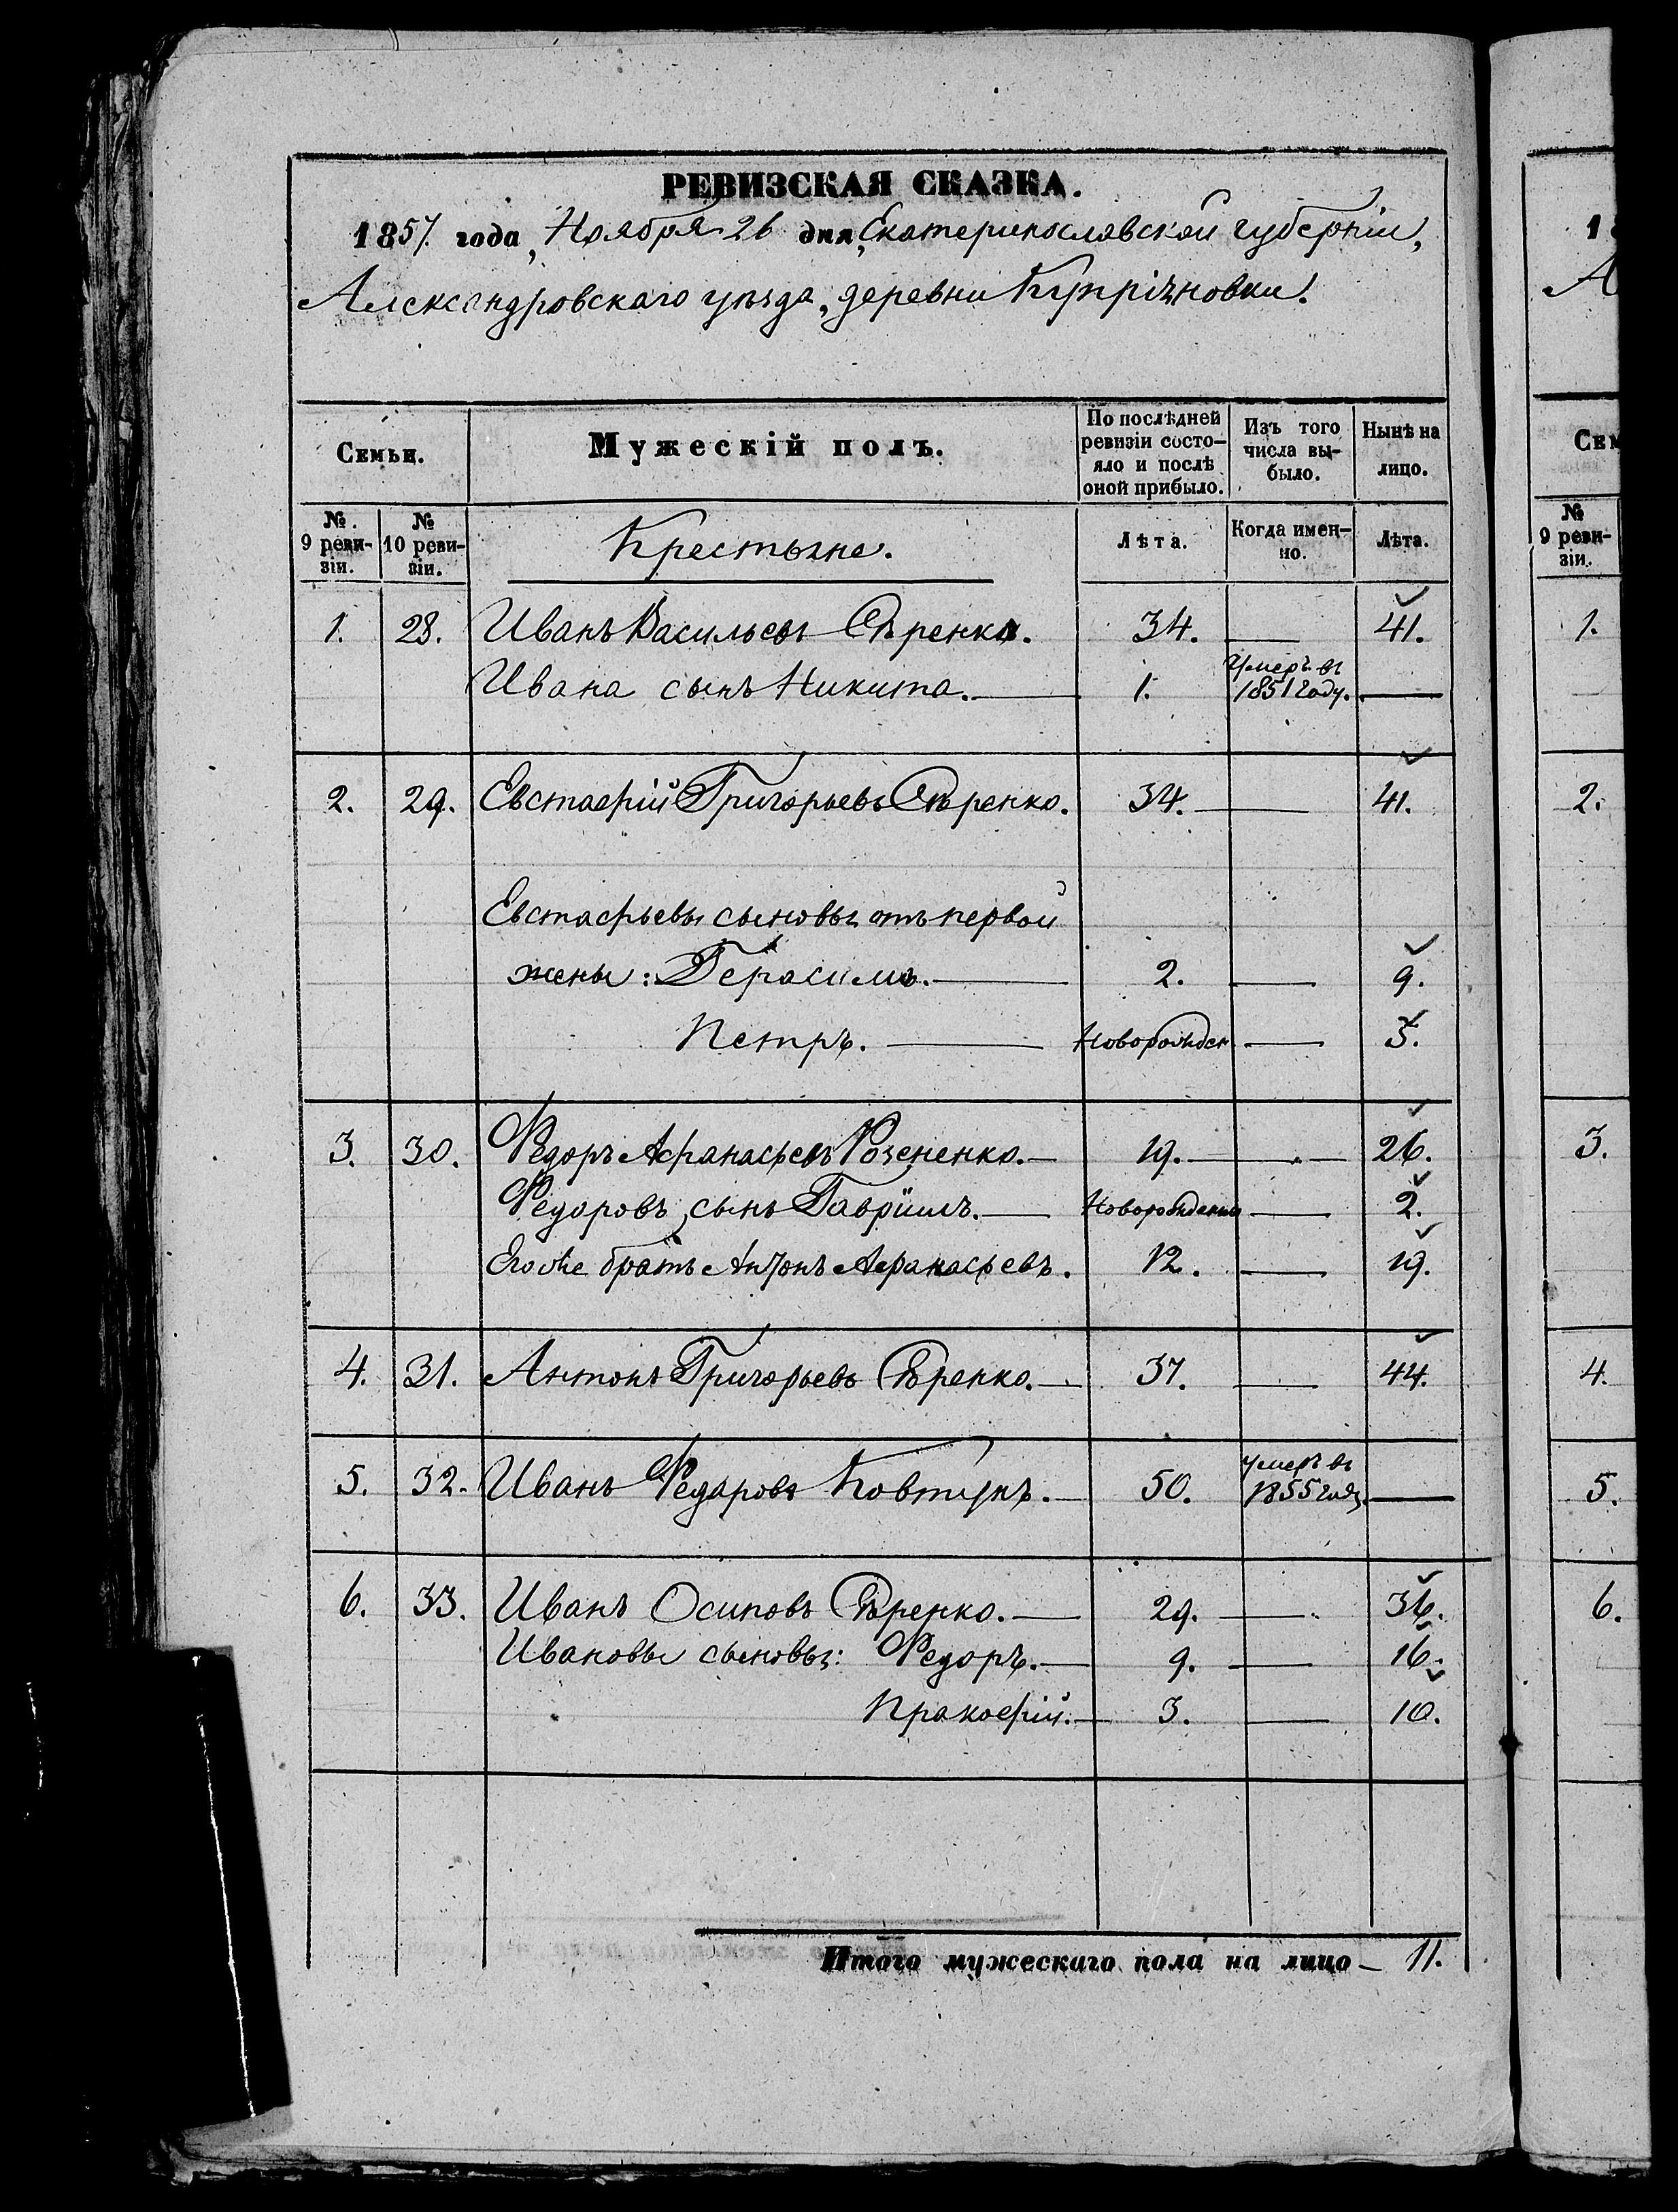 РЕВИЗСКАЯ СКАЗКА.
1857. года, Ноября 26 дня, Екатеринославской губерніи,
Александровскаго уѣзда, деревни Купріяновки.
Семьи.
Мужескій полъ.
По послѣдней ревизіи состо-
яло и послѣ оной прибыло.
Изъ того числа вы-
было.
Нынѣ на лицо.
№ 9 реви-
зіи.
№ 10 реви-
зіи.
Крестьяне.
Лѣта.
Когда имен-
но.
Лѣта.
1. 28. Иванъ Васильевъ Сѣренко. 34. — 41.
Ивана сынъ Никита. — 1. Умеръ въ 1851 году. —
2. 29. Евстафій Григорьевъ Сѣренко. 34. — 41.
Евстафьевы сыновья отъ первой
жены: Герасимъ. — 2. — 9.
Петръ. — Новорожден — 3.
3. 30. Федоръ Афанасьевъ — 19. — 26.
Федоровъ сынъ Гавріилъ. — Новорожденъ — 2.
Егоже братъ Антонъ Афанасьевъ. 12. — 19.
4. 31. Антонъ Григорьевъ Сѣренко. — 37. — 44.
5. 32. Иванъ Федоровъ Ковтунъ. — 50. умеръ въ 1855 году. —
6. 33. Иванъ Осиповъ Сѣренко. — 29. — 36.
Ивановы сыновья: Федоръ. — 9. — 16.
Прокофій. — 3. — 10.
Итого мужескаго пола на лицо — 11.
1
А
Сем
№ 9 реви-
зіи.
1.
2.
3.
4.
5.
6.